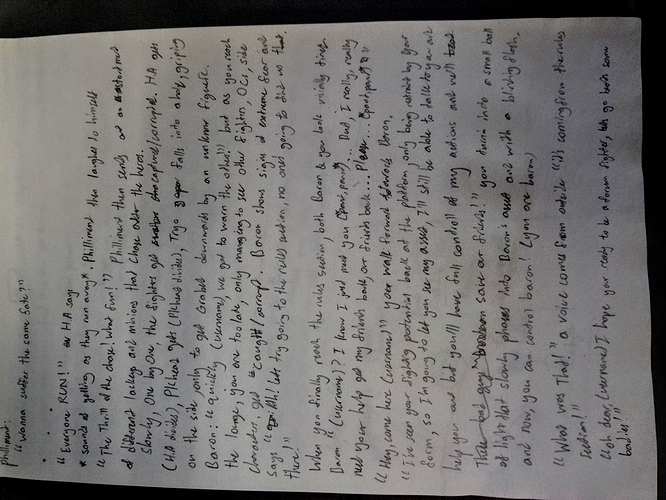 Philliment:
"Wanna suffer the same fate?"
"Everyone RUN!!" H.A says
* sounds of yelling as they run away*. Philliment then laughs to himself
"The Thrill of the chase! What fun!!" Philliment then sends out an
of different lackeys and minions that chase after the heros.
Slowly, One by One, the fighters get captured/corrupted. H.A gets
(H.A divides), P/chead gets (P/chead divides), Trgo falls into a hole, griping
on the side, only to get Grabed downwards by an unknown figure.
Baron: "Quickly (username), we got to warn the others!!" but as you reach
the lounge, you are too late, only managing to see other fighters, OCs, side
characters, get "caught" corrupt. Baron shows signs of extreme fear and
says " lets try going to the rules section, no ones going to find us
there!"
When you finally reach the rules section, both Baron & you look visibly tired.
Baron "(username)? I know I just met you (pant, pant) But, I really, really
need your help get my friends back, our friends back... Please... (pant, pant)"
"Hey, come here (username)!" you walk forward towards Baron.
"I've seen your fighting potential back at the platform, only being restraint by your
form, so I'm going to let you use my assist, I'll still be able to talk to you and
help you out but you'll have full controll of my actions and we'll
save our friends!" you turn into a small ball
of light that slowly phases into Baron's and with a blinding flash,
and now, you can control baron! (you are baron)
"What was That!" a voice comes from outside "it's coming from the rules
section!"
"oh dear, (username) I hope you ready to be a forum fighter, lets go bash some
bodies!"